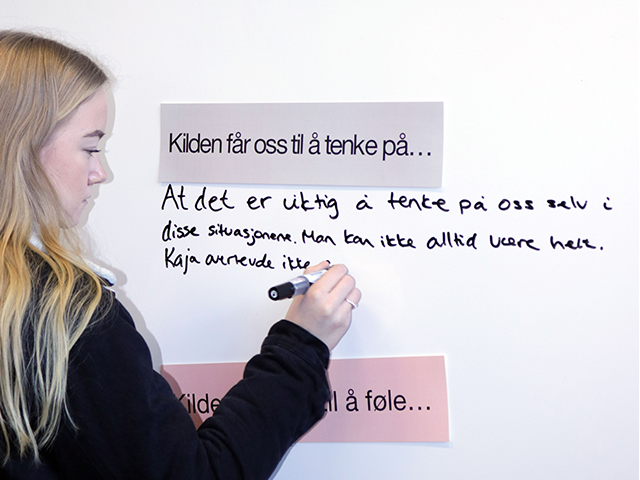 Kilden får oss til å tenke på...
At det er viktig å tenke på oss selv i
disse situasjonene. Man kan ikke alltid være helt.
Kaja ikke
Kilde til å føle...